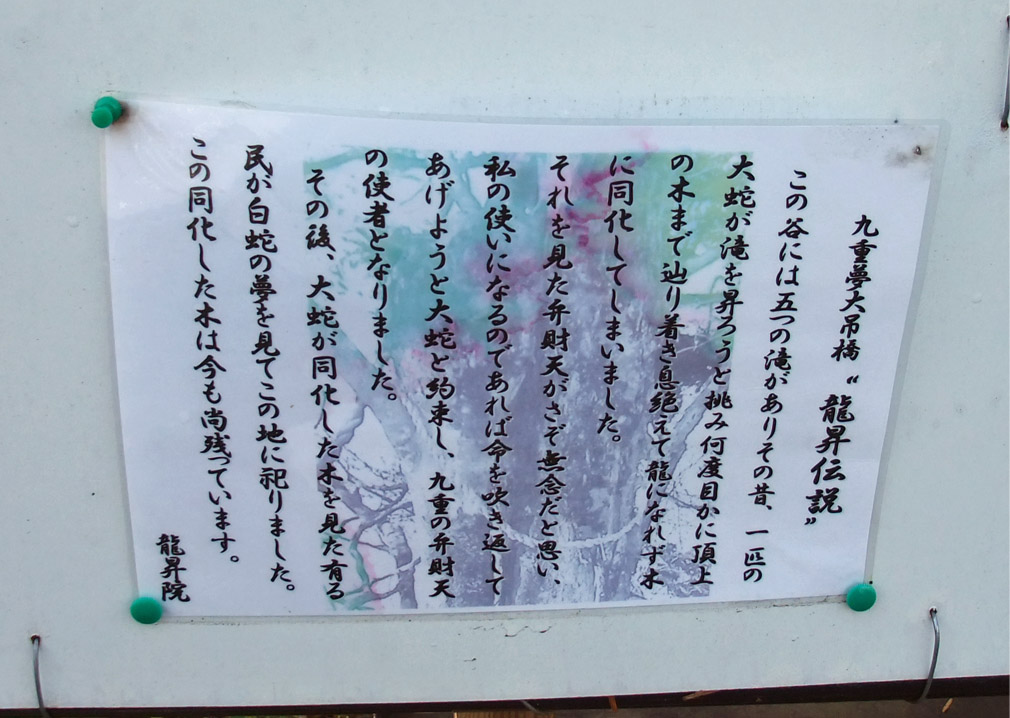 九重夢大吊橋 “龍昇伝説”
この谷には五つの滝がありその昔、一匹の
大蛇が滝を昇ろうと挑み何度目かに頂上
の木まで辿り着き息絶えて龍になれず木
に同化してしまいました。
それを見た弁財天がさぞ無念だと思い、
私の使いになるのであれば命を吹き返して
あげようと大蛇と約束し、九重の弁財天
の使者となりました。
その後、大蛇が同化した木を見た有る
民が白蛇の夢を見てこの地に祀りました。
この同化した木は今も尚残っています。
龍昇院